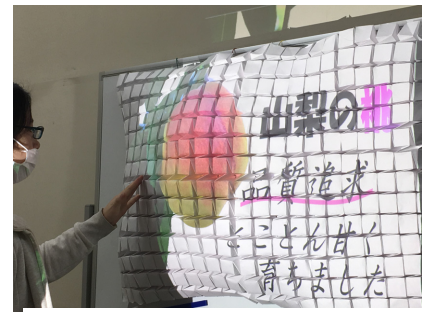 山梨の桃
品質追求
とことん甘く
育ちました